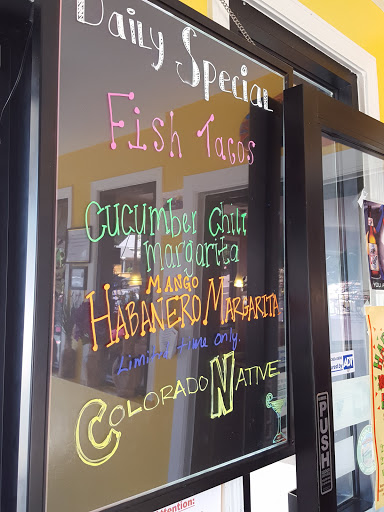 Daily Special
Fish Tacos
Cucumber Chili
margarita
Mango
Habañero Margarita
Limited time only.
Colorado Native
PUSH
ADT
Attention: